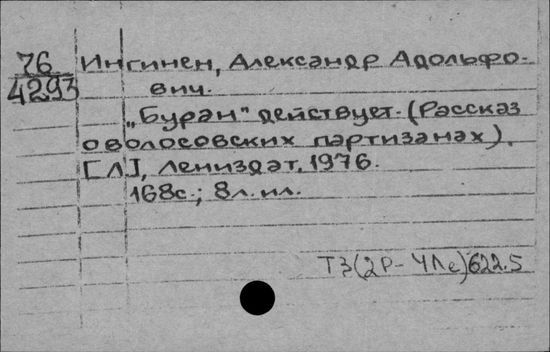 76 Ингинен, Александр Адольфо-
4293 вич.
„Буран“ действует. (Рассказ
о волосовских партизанах).
[Л], Лениздат, 1976.
168с.; 8л. ил.
Т3(2Р-4Ле)622.5